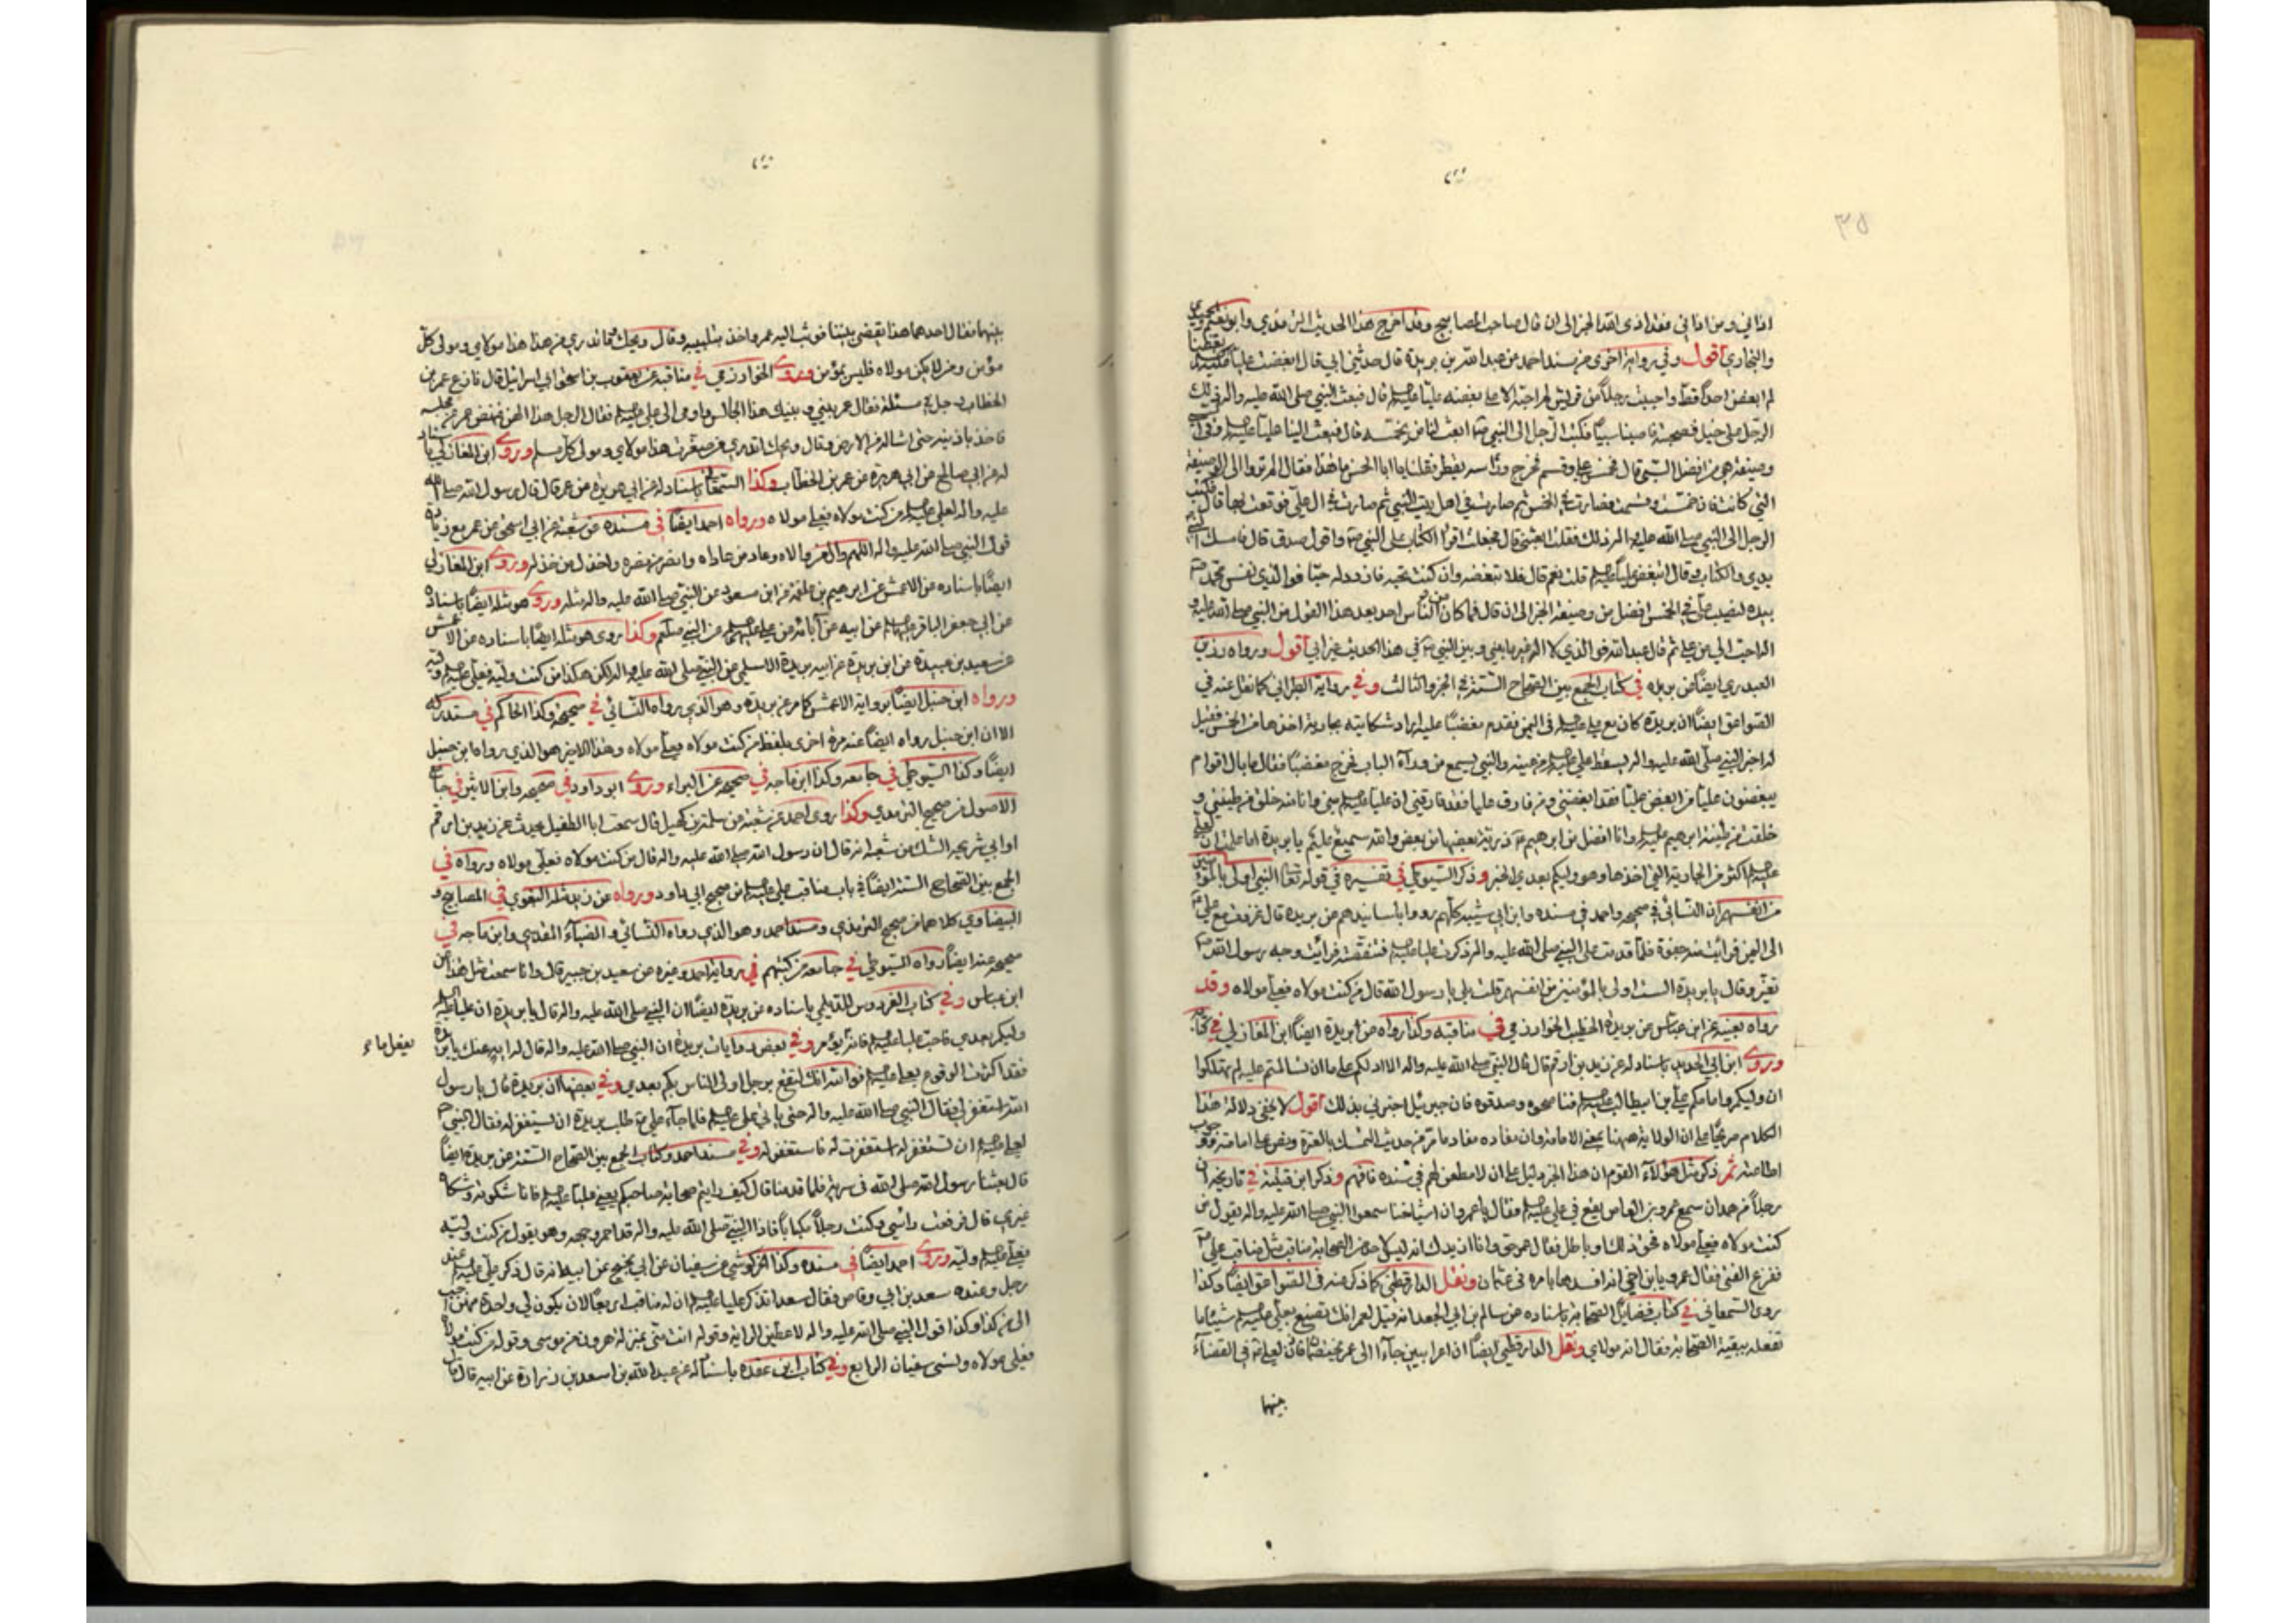 ٣٥
اذاني ومن اذاني فقد اذى الله الخبر الى ان قال صاحب المصابيح وقد اخرج هذا الحديث الترمذي وابو نعيم
والبخاري اقول وفي رواية اخرى من مسند احمد عن عبدالله بن بريدة قال حدثني ابي قال ابغضت عليا
لم ابغض احدا قط واحببت رجلا من قريش لم احبه الا على بغضه عليا عليه السلم قال فبعث النبي صلى الله عليه واله ذلك
الرجل على خيل فصحبته فاصبنا سبيا فكتب الرجل الى النبي ص ابعث لنا من يخمسه قال فبعث الينا عليا عليه السلم وفي السبي
وصيفة هي من افضل السبي قال فخمس علي وقسم فخرج وراسه يقطر فقلنا يا ابا الحسن ما هذا فقال الم تروا الى الوصيفة
التي كانت فاني خمست وقسمت فصارت في الخمس ثم صارت في اهل بيت النبي ثم صارت في ال علي فوقعت بها قال فكتب
الرجل الى النبي صلى الله عليه واله بذلك فقلت ابعثني قال فجعلت اقرأ الكتاب على النبي ص واقول صدق قال فامسك
يدي والكتاب وقال اتبغض عليا عليه السلم قلت نعم قال فلا تبغضه وان كنت تحبه فازدد له حبا فوالذي نفس محمد
بيده لنصيب علي في الخمس افضل من وصيفة الخبر الى ان قال فما كان من الناس احد بعد هذا القول من النبي صلى الله عليه و
اله احب الي من علي ثم قال عبدالله فوالذي لا اله غيره ما بيني وبين النبي ص في هذا الحديث غير ابي اقول ورواه رزين
العبدري ايضا عن بريدة في كتاب الجمع بين الصحاح الستة في الجزء الثالث وفي رواية الطبراني كما نقل عنه في
الصواعق ايضا ان بريدة كان مع علي عليه السلم في اليمن فقدم مغضبا عليه اراد شكايته بجارية اخذها من الخمس فقيل
له اخبر النبي صلى الله عليه واله يسقط علي عليه السلم من عينه والنبي يسمع من وراء الباب فخرج مغضبا فقال ما بال اقوام
يبغضون عليا من ابغض عليا فقد ابغضني ومن فارق عليا فقد فارقني ان عليا عليه السلم مني وانا منه خلق من طينتي و
خلقت من طينة ابرهيم عليه السلم وانا افضل من ابرهيم ذرية بعضها من بعض والله سميع عليم يا بريدة اما علمت ان لعلي
عليه السلم اكثر من الجارية التي اخذها وهو وليكم بعدي الخبر وذكر السيوطي في تفسيره في قوله تعالى النبي اولى بالمؤمنين
من انفسهم ان النسائي في صحيحه واحمد في مسنده وابن ابي شيبة كلهم رووا باسانيدهم عن بريدة قال غزوت مع علي
الى اليمن فرأيت منه جفوة فلما قدمت على النبي صلى الله عليه واله ذكرت عليا عليه السلم فتنقصته فرأيت وجه رسول الله
تغير وقال يا بريدة الست اولى بالمؤمنين من انفسهم قلت بلى يا رسول الله قال من كنت مولاه فعلي مولاه وقد
رواه بعينه عن ابن عباس عن بريدة الخطيب الخوارزمي في مناقبه وكذا رواه عن بريدة ايضا ابن المغازلي في كتابه
وروى ابن ابي الحديد باسناد له عن زيد بن ارقم قال قال النبي صلى الله عليه واله الا ادلكم على ما ان تسالمتم عليه لم تهلكوا
ان وليكم وامامكم علي بن ابيطالب عليه السلم فناصحوه وصدقوه فان جبرئيل اخبرني بذلك اقول لا يخفى دلالة هذا
الكلام صريحا على ان الولاية ههنا بمعنى الامامة وان مفاده مفاد ما مر من حديث التمسك بالعترة ونص على امامته ووجوب
اطاعته ثم ذكر مثل هؤلاء القوم ان هذا الخبر دليل على ان لا مطعن لهم في سنده فافهم وذكر ابن قتيبة في تاريخه ان
رجلا من همدان سمع عمرو بن العاص يقع في علي عليه السلم فقال يا عمرو ان اشياخنا سمعوا النبي صلى الله عليه واله يقول من
كنت مولاه فعلي مولاه فحق ذلك او باطل فقال عمرو حق وانا ازيدك انه ليس لاحد من الصحابة مناقب مثل مناقب علي
ففزع الفتى فقال عمرو يا بن اخي انه افسدها بامره في عثمان ونقل الدارقطني كما ذكر عنه في الصواعق ايضا وكذا
روى السمعاني في كتاب فضايل الصحابة باسناده عن سالم بن ابي الجعد انه قيل لعمر انك تصنع بعلي عليه السلم شيئا ما
تفعله ببقية الصحابة فقال انه مولاي ونقل الدارقطني ايضا ان اعرابيين جاءا الى عمر يختصمان فاذن لعلي في القضاء
بينهما
بينهما فقال احدهما هذا يقضي بيننا فوثب اليه عمر واخذ بتلبيبه وقال ويحك ما تدري من هذا هذا مولاي ومولى كل
مؤمن ومن لم يكن مولاه فليس بمؤمن وروى الخوارزمي في مناقبه عن يعقوب بن اسحق ابي اسرائيل قال نازع عمر بن
الخطاب رجل في مسئلة فقال عمر بيني وبينك هذا الجالس واومى الى علي عليه السلم فقال الرجل هذا الهن فنهض عمر من مجلسه
فاخذ باذنيه حتى اشاله من الارض وقال ويحك اتدري من صغرت هذا مولاي ومولى كل مسلم وروى ابن المغازلي باسناد
له عن ابي صالح عن ابي هريرة عن عمر بن الخطاب وكذا السمعاني باسناد له عن ابي هريرة عن عمر قال قال رسول الله صلى الله
عليه واله لعلي عليه السلم من كنت مولاه فعلي مولاه ورواه احمد ايضا في مسنده عن شعبة عن ابي اسحق عن عمر مع زيادة
قول النبي صلى الله عليه واله اللهم وال من والاه وعاد من عاداه وانصر من نصره واخذل من خذله وروى ابن المغازلي
ايضا باسناده عن الاعمش عن ابرهيم بن علقمة عن ابن مسعود عن النبي صلى الله عليه واله مثله وروى هو مثله ايضا باسناده
عن ابي جعفر الباقر عليه السلم عن ابيه عن آبائه عن علي عليهم السلم عن النبي صلعم وكذا روى هو مثله ايضا باسناده عن الاعمش
عن سعيد بن عبيدة عن ابن بريدة عن ابيه بريدة الاسلمي عن النبي صلى الله عليه واله لكن هكذا من كنت وليه فعلي عليه السلم وليه
ورواه ابن حنبل ايضا برواية الاعمش كما مر عن بريدة وهو الذي رواه النسائي في صحيحه وكذا الحاكم في مستدركه
الا ان ابن حنبل رواه ايضا عنه مرة اخرى بلفظ من كنت مولاه فعلي مولاه وهذا الاخير هو الذي رواه ابن حنبل
ايضا وكذا السيوطي في جامعه وكذا ابن ماجه في صحيحه عن البراء وروى ابو داود في صحيحه وابن الاثير في جامع
الاصول من صحيح الترمذي وكذا روى احمد عن شعبة عن سلمة بن كهيل قال سمعت ابا الطفيل يحدث عن زيد بن ارقم
او ابي سريحة الشك من شعبة انه قال ان رسول الله صلى الله عليه واله قال من كنت مولاه فعلي مولاه ورواه في
الجمع بين الصحاح الستة ايضا في باب مناقب علي عليه السلم من صحيح ابي داود ورواه عن زيد مثله البغوي في المصابيح و
البيضاوي كلاهما من صحيح الترمذي ومسند احمد وهو الذي رواه النسائي والضياء المقدسي وابن ماجه في
صحيحه عنه ايضا رواه السيوطي في جامعه من كتبهم في رواية احمد وغيره عن سعيد بن جبير قال وانا سمعت مثل هذا من
ابن عباس وفي كتاب الفردوس للديلمي باسناده عن بريدة ايضا ان النبي صلى الله عليه واله قال يا بريدة ان عليا عليه السلم
وليكم بعدي فاحب عليا عليه السلم فانه يفعل ما يؤمر وفي بعض روايات بريدة ان النبي صلى الله عليه واله قال له ايه عنك يا بريدة
يفعل ما ء
فقد اكثرت الوقوع بعلي عليه السلم فوالله انك لتقع برجل اولى الناس بكم بعدي وفي بعضها ان بريدة قال يا رسول
الله استغفر لي فقال النبي صلى الله عليه واله حتى ياتي علي عليه السلم فلما جاء علي طلب بريدة ان يستغفر له فقال النبي
لعلي عليه السلم ان تستغفر له استغفرت له فاستغفر له وفي مسند احمد وكتاب الجمع بين الصحاح الستة عن بريدة ايضا
قال بعثنا رسول الله صلى الله في سرية فلما قدمنا قال كيف رايتم صحابة صاحبكم يعني عليا عليه السلم فاما شكوته او شكاه
غيري قال فرفعت راسي وكنت رجلا مكبابا فاذا النبي صلى الله عليه واله قد احمر وجهه وهو يقول من كنت وليه
فعلي عليه السلم وليه وروى احمد ايضا في مسنده وكذا الخركوشي عن سفيان عن ابي نجيح عن ابيه انه قال ذكر علي عليه السلم عند
رجل وعنده سعد بن ابي وقاص فقال سعد اتذكر عليا عليه السلم ان له مناقب اربعا لان يكون لي واحدة منهن احب
الي من كذا وكذا قول النبي صلى الله عليه واله لاعطين الراية وقوله انت مني بمنزلة هرون من موسى وقوله من كنت مولاه
فعلي مولاه ونسي سفيان الرابع وفي كتاب ابن عقدة باسناده عن عبدالله بن اسعد بن زرارة عن ابيه قال قال